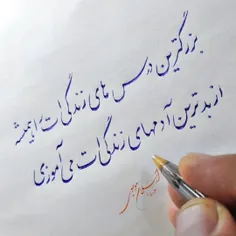 بزرگترین درس های زندگی ات را همیشه
از بدترین آدمهای زندگی ات می آموزی